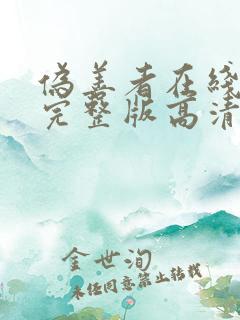 偽善者在綫
完整版高清
金世洵
未经同意禁止转载